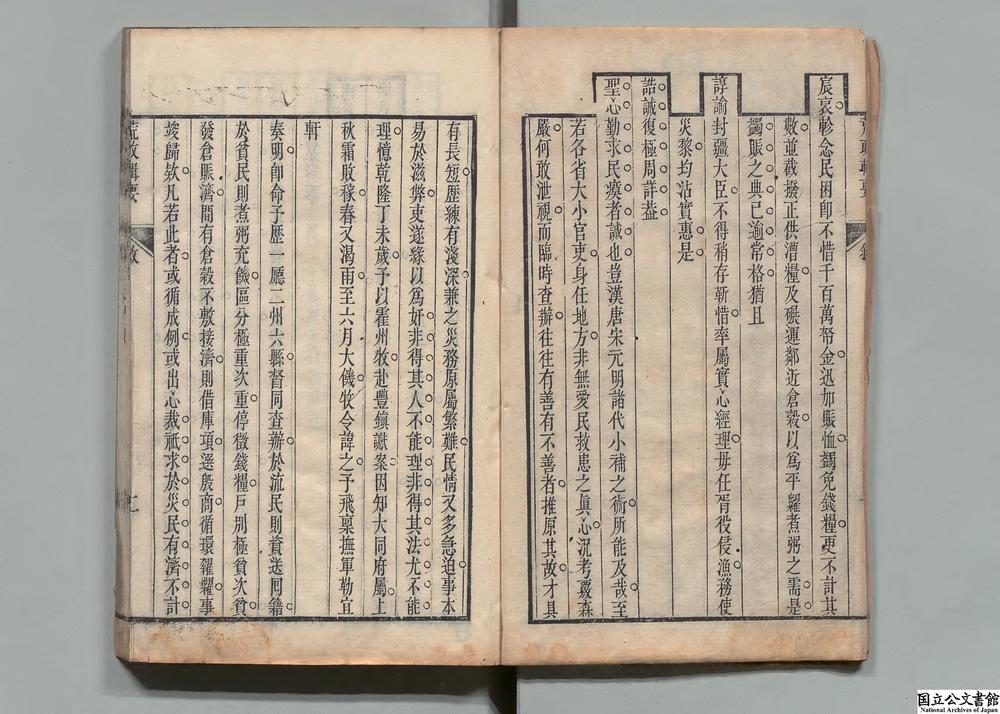 宸衷軫念民困卽不惜千百萬帑金迅加賑恤蠲免錢糧更不計其
數並截撥正供漕糧及碾運鄰近倉穀以爲平糶煮粥之需是
蠲賑之典已逾常格猶且
諄諭封疆大臣不得稍存靳惜率屬實心經理毋任胥役侵漁務使
災黎均沾實惠是
誥誡復極周詳葢
聖心勤求民瘼者誠也豈漢唐宋元明諸代小補之術所能及哉至
若各省大小官吏身任地方非無愛民救患之眞心況考覈森
嚴何敢泄視而臨時查辦往往有善有不善者推原其故才具
有長短歷練有淺深兼之災務原屬繁難民情又多急迫事本
易於滋弊吏遂緣以爲奸非得其人不能理非得其法尤不能
理憶乾隆丁未歲予以霍州牧赴豐鎭讞案因知大同府屬上
秋霜敗稼春又渴雨至六月大饑牧令諱之予飛稟撫軍勒宜
軒
奏明卽命予歷一廳二州六縣督同查辦於流民則資送囘籍
於貧民則煮粥充饑區分極重次重停徵錢糧戸別極貧次貧
發倉賑濟間有倉穀不敷接濟則借庫項選殷商循環糴糶事
竣歸欵凡若此者或循成例或出心裁祇求於災民有濟不計
荒政輯要
敘
国立公文書館
National Archives of Japan